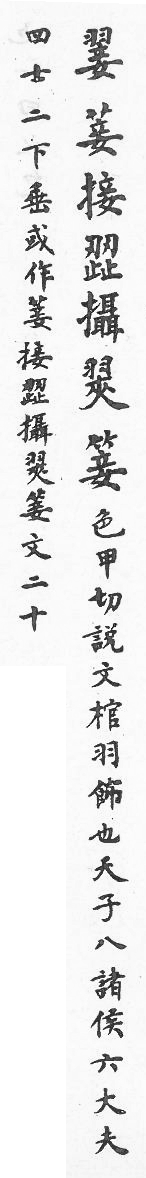 翣菨接歰攝翜色甲切說文棺羽飾也天子八諸侯六大夫
四士二下垂或作菨接歰攝翜文二十